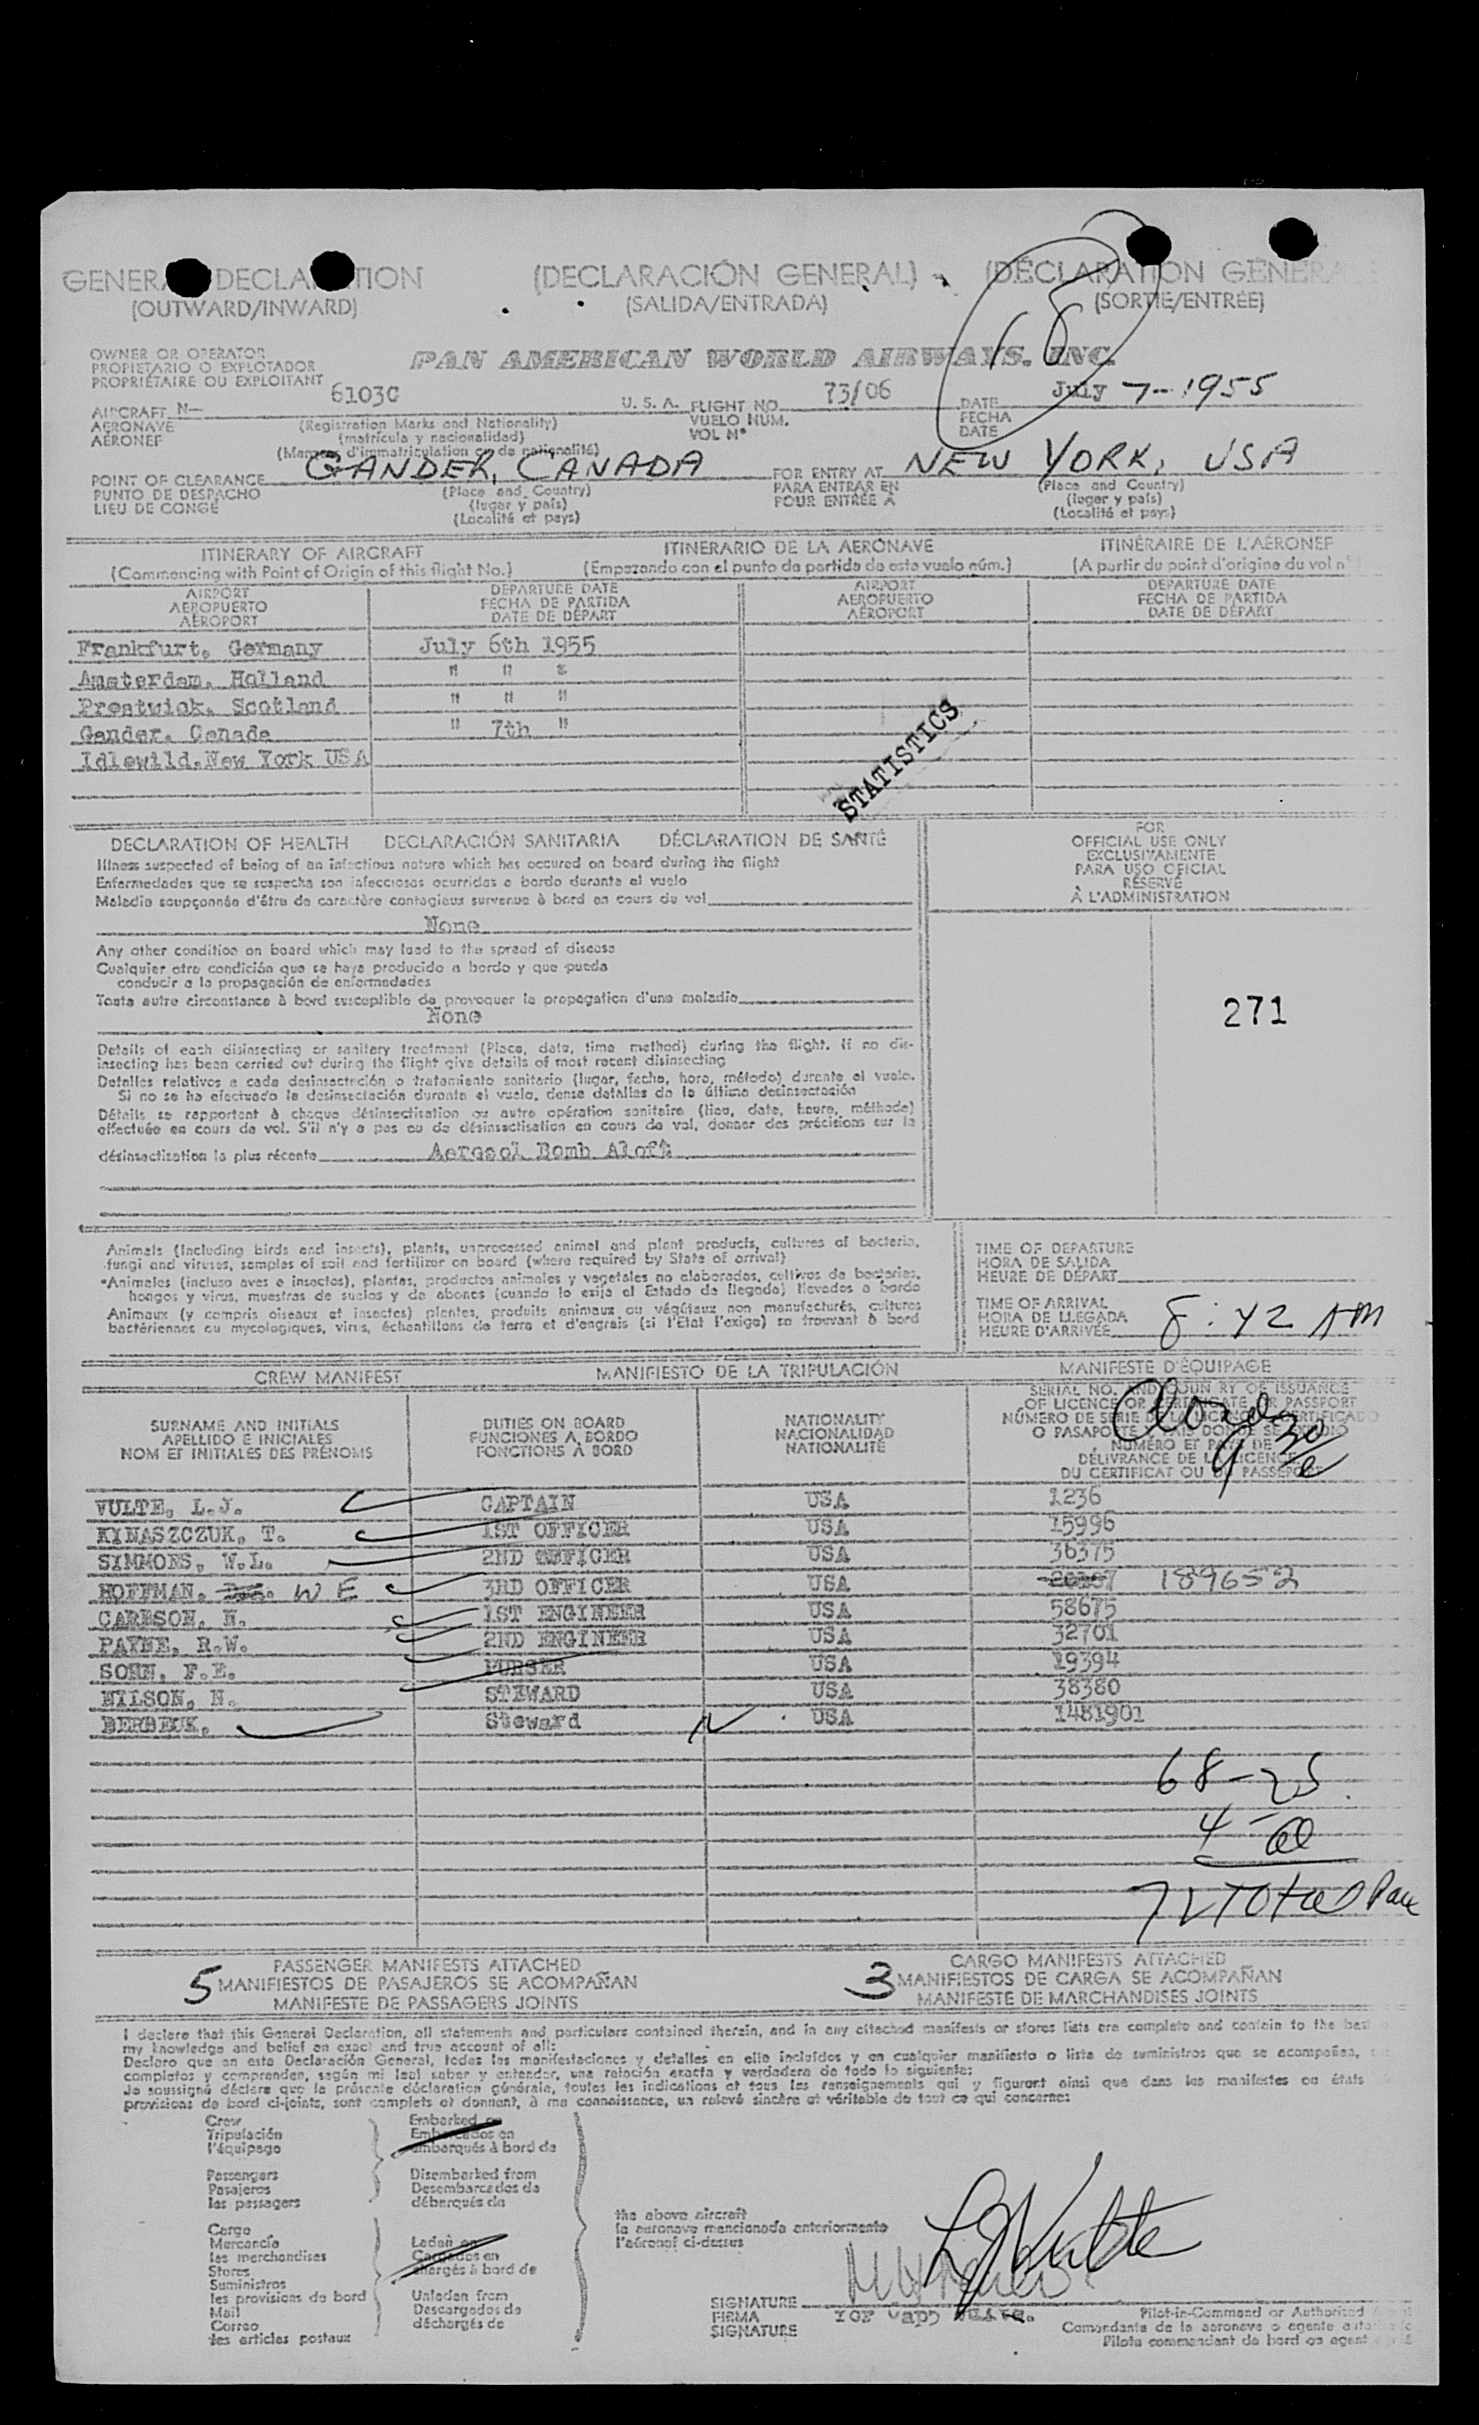 GENERAL DECLARATION (DECLARACIÓN GENERAL) (DÉCLARATION GÉNÉRA
(OUTWARD/INWARD) (SALIDA/ENTRADA) (SORTIE/ENTRÉE)
18
OWNER OR OPERATOR
PROPIETARIO O EXPLOTADOR
PROPRIÉTAIRE OU EXPLOITANT
PAN AMERICAN WORLD AIRWAYS, INC.
AIRCRAFT N— 6103C U. S. A. FLIGHT NO. 73/06 DATE July 7-1955
AERONAVE (Registration Marks and Nationality) VUELO NUM. FECHA
AÉRONEF (matrícula y nacionalidad) VOL Nº DATE
(Marques d'immatriculation et de nationalité)
POINT OF CLEARANCE GANDER, CANADA FOR ENTRY AT NEW YORK, USA
PUNTO DE DESPACHO (Place and Country) PARA ENTRAR EN (Place and Country)
LIEU DE CONGÉ (lugar y país) POUR ENTRÉE À (lugar y país)
(Localité et pays) (Localité et pays)
ITINERARY OF AIRCRAFT ITINERARIO DE LA AERONAVE ITINÉRAIRE DE L'AÉRONEF
(Commencing with Point of Origin of this flight No.) (Empezando con el punto de partida de este vuelo núm.) (A partir du point d'origine du vol nº
AIRPORT DEPARTURE DATE AIRPORT DEPARTURE DATE
AEROPUERTO FECHA DE PARTIDA AEROPUERTO FECHA DE PARTIDA
AÉROPORT DATE DE DÉPART AÉROPORT DATE DE DÉPART
Frankfurt, Germany July 6th 1955
Amsterdam, Holland " " "
Prestwick, Scotland " " "
Gander, Canada " 7th "
Idlewild, New York USA
STATISTICS
DECLARATION OF HEALTH DECLARACIÓN SANITARIA DÉCLARATION DE SANTÉ
FOR
OFFICIAL USE ONLY
EXCLUSIVAMENTE
PARA USO OFICIAL
RÉSERVÉ
À L'ADMINISTRATION
Illness suspected of being of an infectious nature which has occured on board during the flight
Enfermedades que se sospecha son infecciosas ocurridas a bordo durante el vuelo
Maladie soupçonnée d'être de caractère contagieux survenue à bord en cours de vol
None
Any other condition on board which may lead to the spread of disease
Cualquier otra condición que se haya producido a bordo y que pueda
conducir a la propagación de enfermedades
Toute autre circonstance à bord susceptible de provoquer la propagation d'une maladie
None
271
Details of each disinsecting or sanitary treatment (Place, date, time method) during the flight. If no dis-
insecting has been carried out during the flight give details of most recent disinsecting
Detalles relativos a cada desinsectación o tratamiento sanitario (lugar, fecha, hora, método) durante el vuelo.
Si no se ha efectuado la desinsectación durante el vuelo, dense detalles de la última desinsectación
Détails se rapportant à chaque désinsectisation ou autre opération sanitaire (lieu, date, heure, méthode)
effectuée en cours de vol. S'il n'y a pas eu de désinsectisation en cours de vol, donner des précisions sur la
désinsectisation la plus récente Aerosol Bomb Aloft
Animals (Including birds and insects), plants, unprocessed animal and plant products, cultures of bacteria,
fungi and viruses, samples of soil and fertilizer on board (where required by State of arrival)
Animales (incluso aves e insectos), plantas, productos animales y vegetales no elaborados, cultivos de bacterias,
hongos y virus, muestras de suelos y de abonos (cuando lo exija el Estado de llegada) llevados a bordo
Animaux (y compris oiseaux et insectes) plantes, produits animaux ou végétaux non manufacturés, cultures
bactériennes ou mycologiques, virus, échantillons de terre et d'engrais (si l'Etat l'exige) se trouvant à bord
TIME OF DEPARTURE
HORA DE SALIDA
HEURE DE DÉPART
TIME OF ARRIVAL
HORA DE LLEGADA
HEURE D'ARRIVÉE 8:42 AM
CREW MANIFEST MANIFIESTO DE LA TRIPULACIÓN MANIFESTE D'ÉQUIPAGE
SURNAME AND INITIALS
APELLIDO E INICIALES
NOM ET INITIALES DES PRÉNOMS
DUTIES ON BOARD
FUNCIONES A BORDO
FONCTIONS À BORD
NATIONALITY
NACIONALIDAD
NATIONALITÉ
SERIAL NO. AND COUNTRY OF ISSUANCE
OF LICENCE OR CERTIFICATE OR PASSPORT
NÚMERO DE SERIE DE LA LICENCIA CERTIFICADO
O PASAPORTE Y PAÍS DONDE SE EXPIDIÓ
NUMÉRO ET PAYS DE
DÉLIVRANCE DE LA LICENCE
DU CERTIFICAT OU DU PASSEPORT
VULTE, L.J. CAPTAIN USA 1236
KINASZCZUK, T. 1ST OFFICER USA 15996
SIMMONS, W.L. 2ND OFFICER USA 36375
HOFFMAN, W E 3RD OFFICER USA 189652
CARLSON, N. 1ST ENGINEER USA 58675
PAYNE, R.W. 2ND ENGINEER USA 32701
SOHN, F.E. PURSER USA 19394
NILSON, N. STEWARD USA 38380
BERBEUK, Steward N USA 1481901
68-25
4-00
72 Total Pax
PASSENGER MANIFESTS ATTACHED CARGO MANIFESTS ATTACHED
5 MANIFIESTOS DE PASAJEROS SE ACOMPAÑAN 3 MANIFIESTOS DE CARGA SE ACOMPAÑAN
MANIFESTE DE PASSAGERS JOINTS MANIFESTE DE MARCHANDISES JOINTS
I declare that this General Declaration, all statements and particulars contained therein, and in any attached manifests or stores lists are complete and contain to the best
my knowledge and belief an exact and true account of all:
Declaro que en esta Declaración General, todas las manifestaciones y detalles en ella incluídos y en cualquier manifiesto o lista de suministros que se acompañan,
completos y comprenden, según mi leal saber y entender, una relación exacta y verdadera de todo lo siguiente:
Je soussigné déclare que la présente déclaration générale, toutes les indications et tous les renseignements qui y figurent ainsi que dans les manifestes ou états
provisions de bord ci-joints, sont complets et donnent, à ma connaissance, un relevé sincère et véritable de tout ce qui concerne:
Crew Embarked on
Tripulación Embarcados en
l'équipage embarqués à bord de
Passengers Disembarked from
Pasajeros Desembarcados de
les passagers débarqués de
Cargo
Mercancía Laden on
les merchandises Cargados en
Stores chargés à bord de
Suministros
les provisions de bord Unladen from
Mail Descargados de
Correo déchargés de
les articles postaux
the above aircraft
la aeronave mencionada anteriormente
l'aéronef ci-dessus
LJ Vulte
SIGNATURE
FIRMA
SIGNATURE
for Capt Vulte.
Pilot-in-Command or Authorized
Comandante de la aeronave o agente
Pilote commandant de bord ou agent